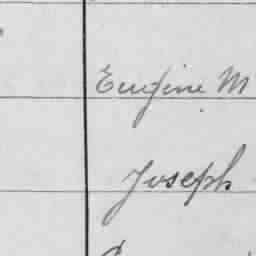 Eugine M
Joseph